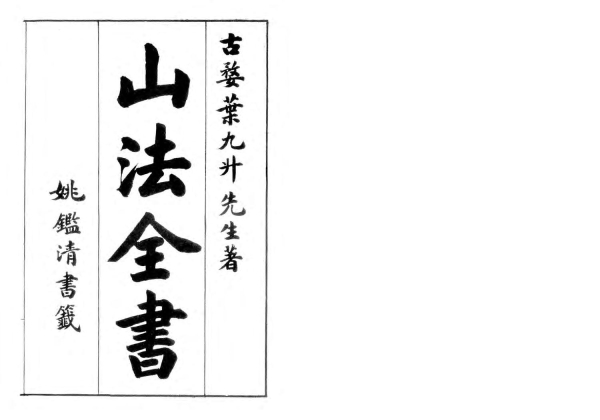 古婺葉九升先生著
山法全書
姚鑑清書籤